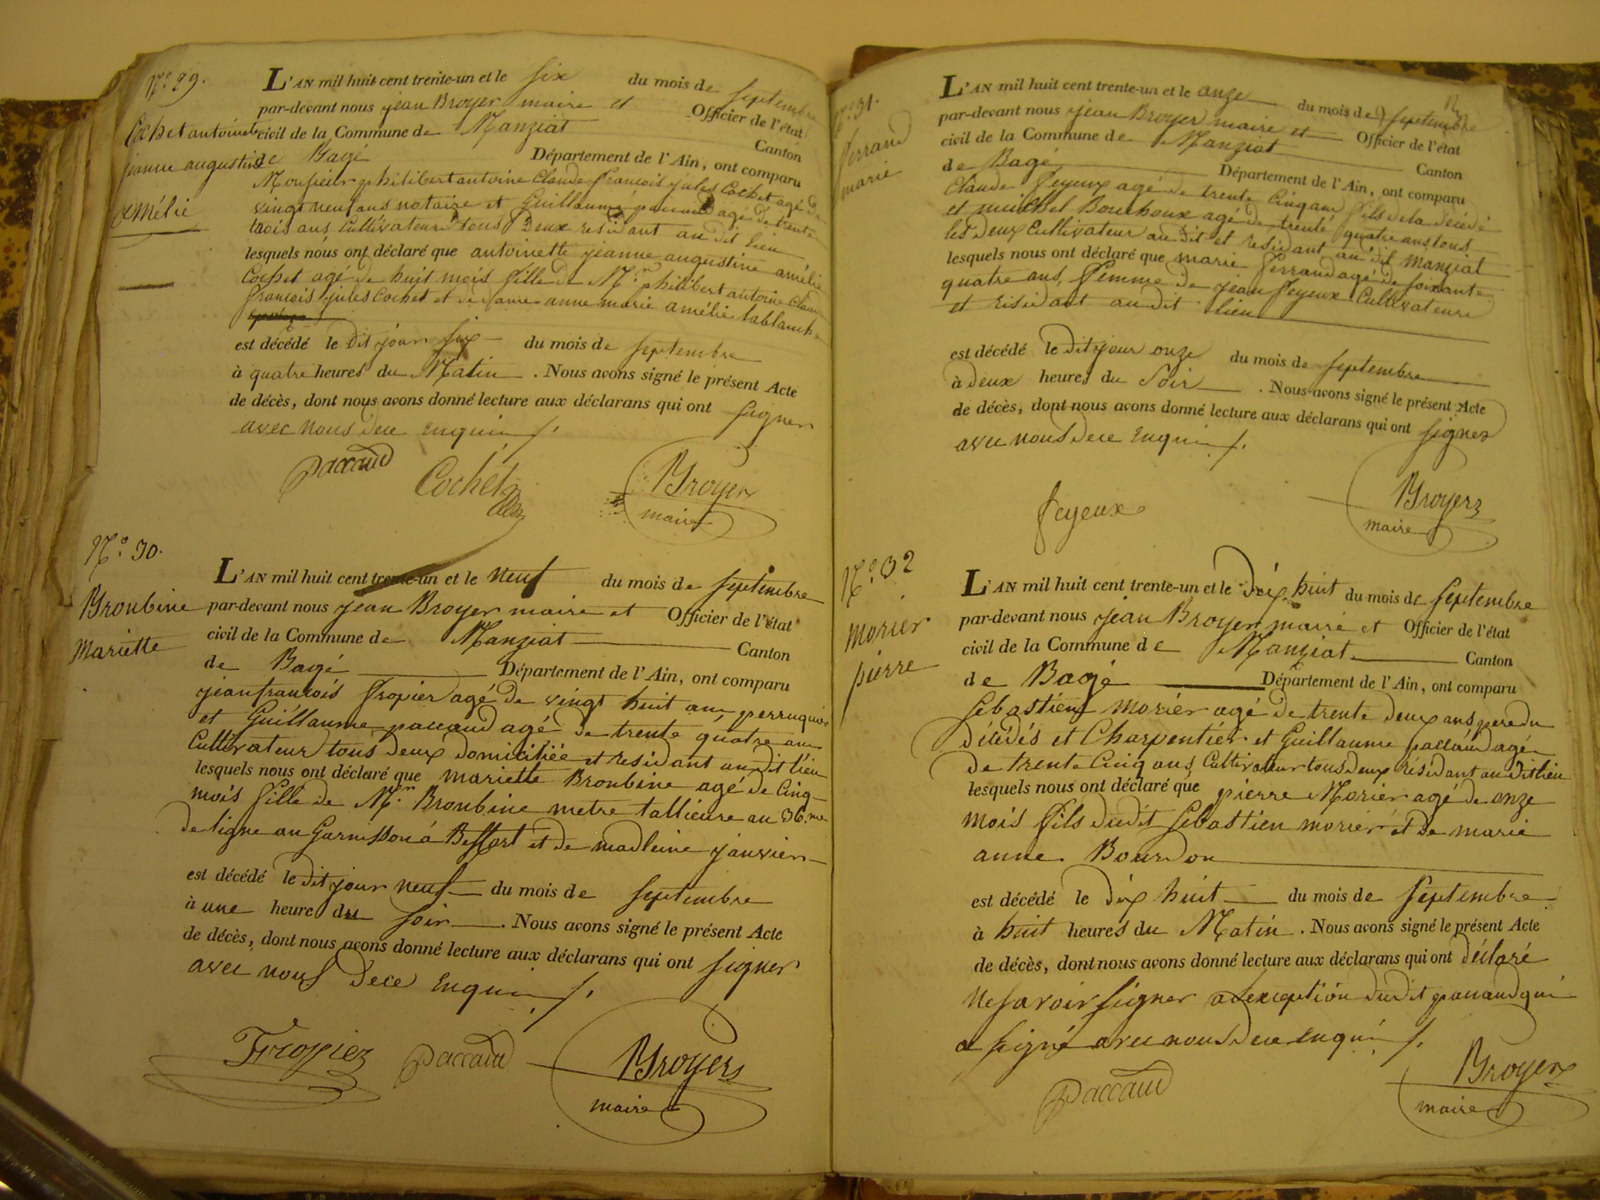 N.° 29.
Cochet antoinette
jeanne augustine
amélie
L'AN mil huit cent trente-un et le six du mois de septembre
par-devant nous jean Broyer maire et Officier de l'état
civil de la Commune de Manziat Canton
de Bagé Département de l'Ain, ont comparu
Monsieur philibert antoine Claude francois jules Cochet agé de
vingt neuf ans notaire et Guillaume paccaud agé de trente
trois ans Cultivateur tous Deux residant au dit lieu
lesquels nous ont déclaré que antoinette jeanne augustine amélie
Cochet agé de huit mois fille de Mr. philibert antoine Claude
francois jules Cochet et de dame anne marie amélie
est décédé le dit jour six du mois de septembre
à quatre heures du Matin. Nous avons signé le présent Acte
de décès, dont nous avons donné lecture aux déclarans qui ont signer
avec nous dece enquis /.
Paccaud Cochet Broyer
maire
N.° 30.
Broubine
Mariette
L'AN mil huit cent trente-un et le neuf du mois de septembre
par-devant nous jean Broyer maire et Officier de l'état
civil de la Commune de Manziat Canton
de Bagé Département de l'Ain, ont comparu
jean francois fropier agé de vingt huit ans perruquier
et Guillaume paccaud agé de trente quatre ans
Cultivateur tous deux domiciliée et residant au dit lieu
lesquels nous ont déclaré que mariette Broubine agé de Cinq
mois fille de Mr. Broubine metre tallieure au 36.me
de ligne au Garnisson à Beffort et de madleine janvier
est décédé le dit jour neuf du mois de septembre
à une heure du soir. Nous avons signé le présent Acte
de décès, dont nous avons donné lecture aux déclarans qui ont signer
avec nous Dece enquis /.
Fropier Paccaud Broyer
maire
N.° 31.
ferrand
marie
L'AN mil huit cent trente-un et le onze du mois de septembre
par-devant nous jean Broyer maire et Officier de l'état
civil de la Commune de Manziat Canton
de Bagé Département de l'Ain, ont comparu
Claude feyeux agé de trente Cinq ans fils de la décédé
et michel Bouchoux agé de trente quatre ans tous
les deux Cultivateur au dit et residant au dit manziat
lesquels nous ont déclaré que marie ferrand agé de soixante
quatre ans, femme de jean feyeux Cultivateur
et residant au dit lieu
est décédé le dit jour onze du mois de septembre
à deux heures du soir. Nous avons signé le présent Acte
de décès, dont nous avons donné lecture aux déclarans qui ont signer
avec nous dece enquis /.
feyeux Broyer
maire
N.° 32
morier
pierre
L'AN mil huit cent trente-un et le dix huit du mois de septembre
par-devant nous jean Broyer maire et Officier de l'état
civil de la Commune de Manziat Canton
de Bagé Département de l'Ain, ont comparu
sébastien morier agé de trente deux ans pere du
décédés et Charpentier et Guillaume paccaud agé
de trente Cinq ans Cultivateur tous deux résidant au dit lieu
lesquels nous ont déclaré que pierre Morier agé de onze
mois fils dudit sebastien morier et de marie
anne Bourdon
est décédé le dix huit du mois de septembre
à huit heures du Matin. Nous avons signé le présent Acte
de décès, dont nous avons donné lecture aux déclarans qui ont déclaré
ne savoir signer a lexception dudit paccaud qui
a signé avec nous dece enquis /.
Paccaud Broyer
maire